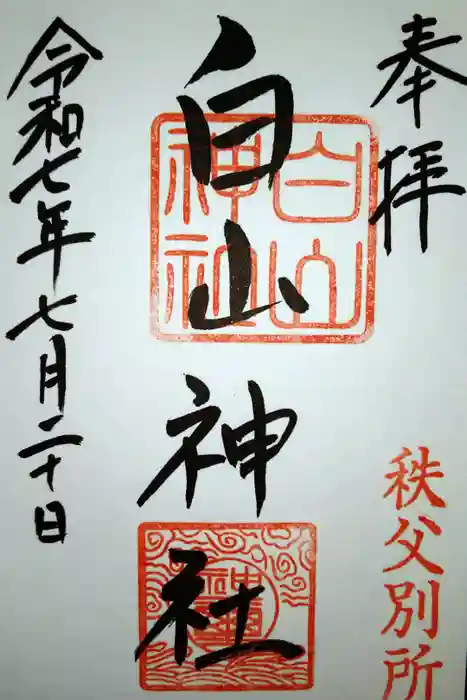 奉拝
秩父別所
白山神社
白山神社
令和七年七月二十日